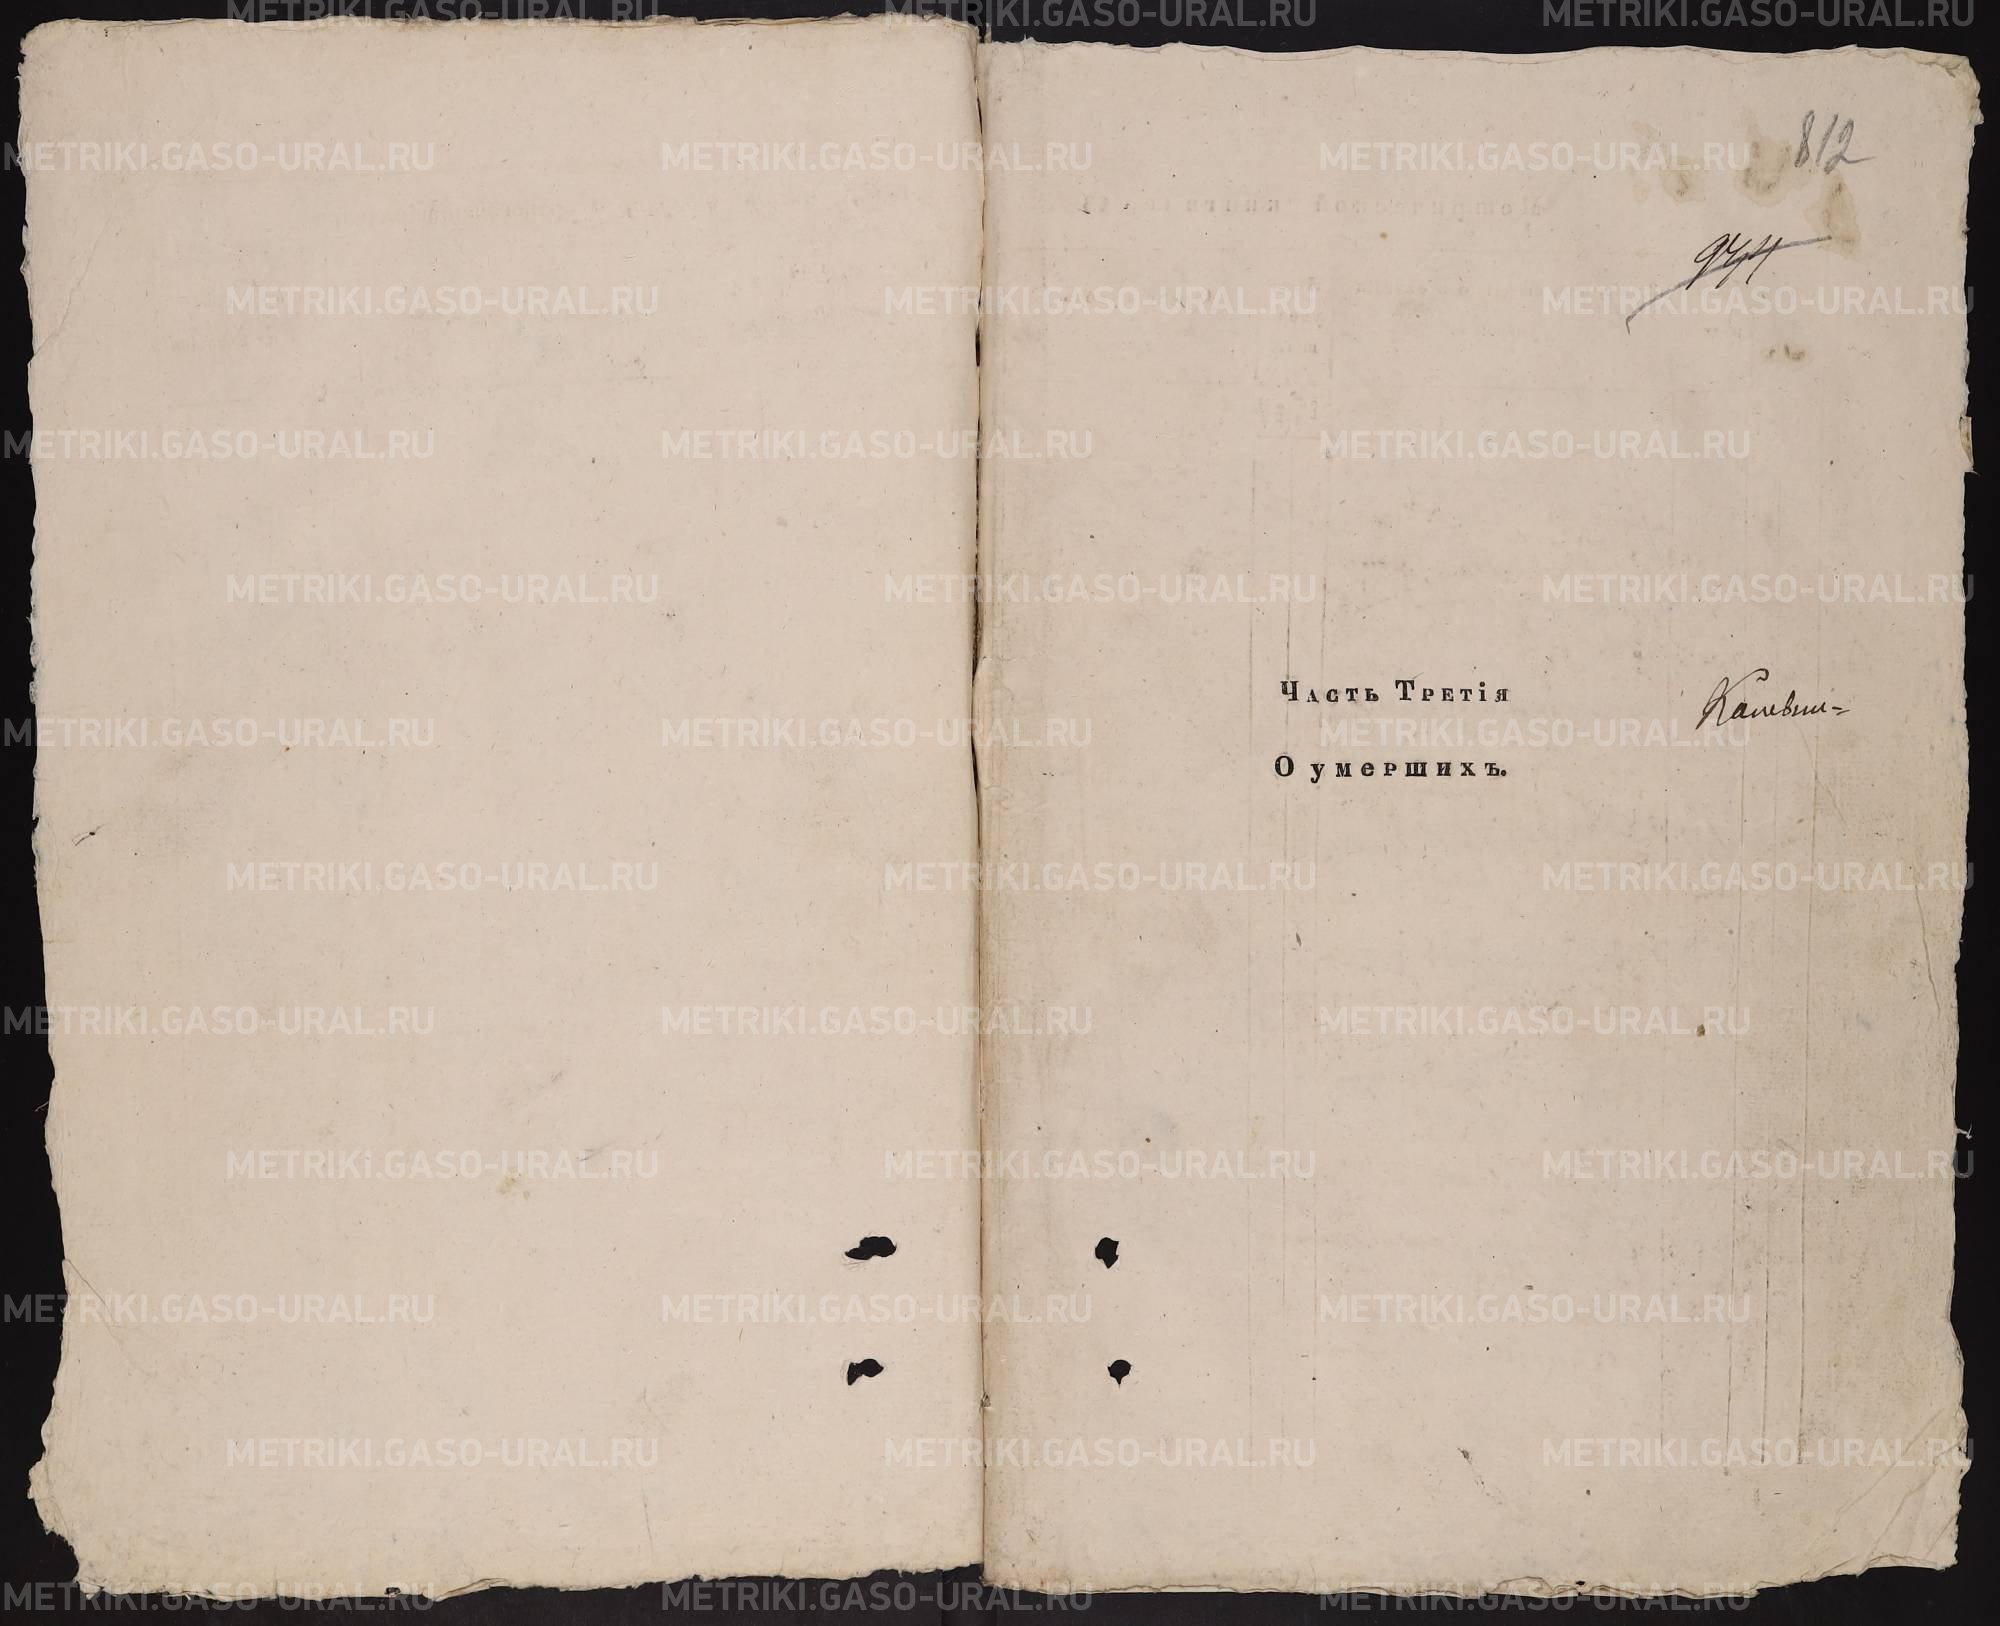 812
974
Часть Третія
О умершихъ.
METRIKI.GASO-URAL.RU